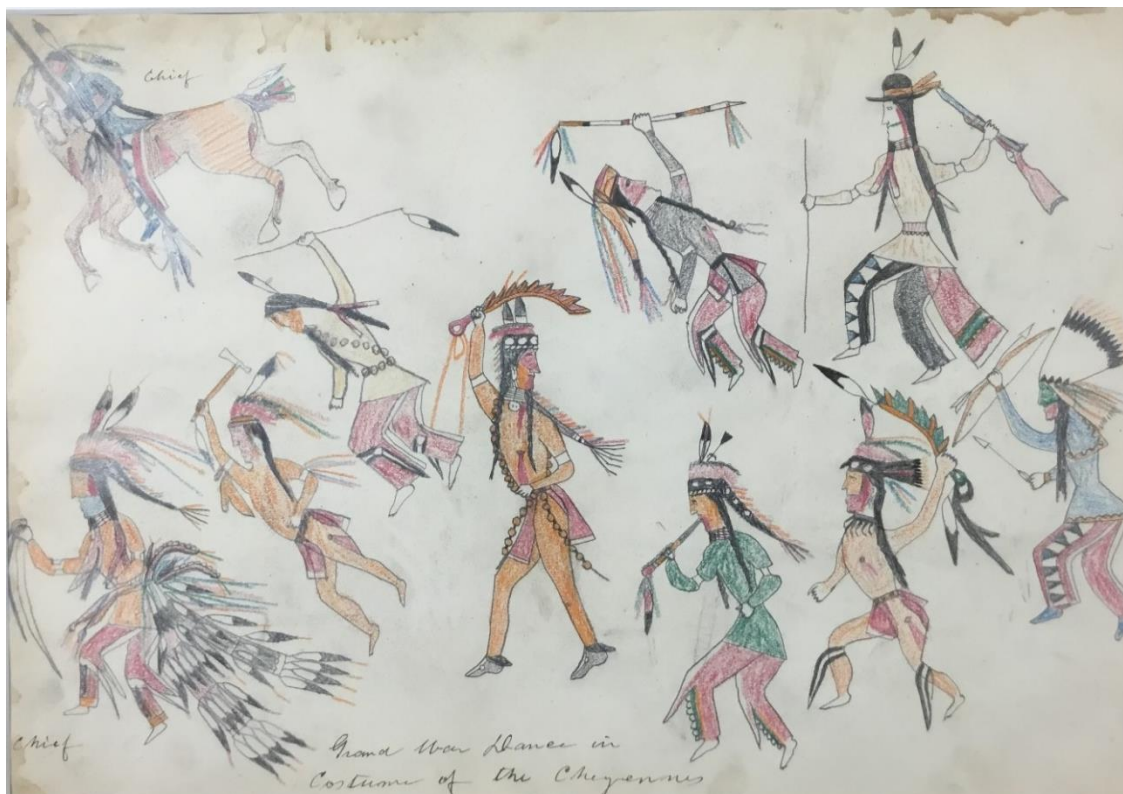 Chief
Chief
Grand War Dance in
Costume of the Cheyennes